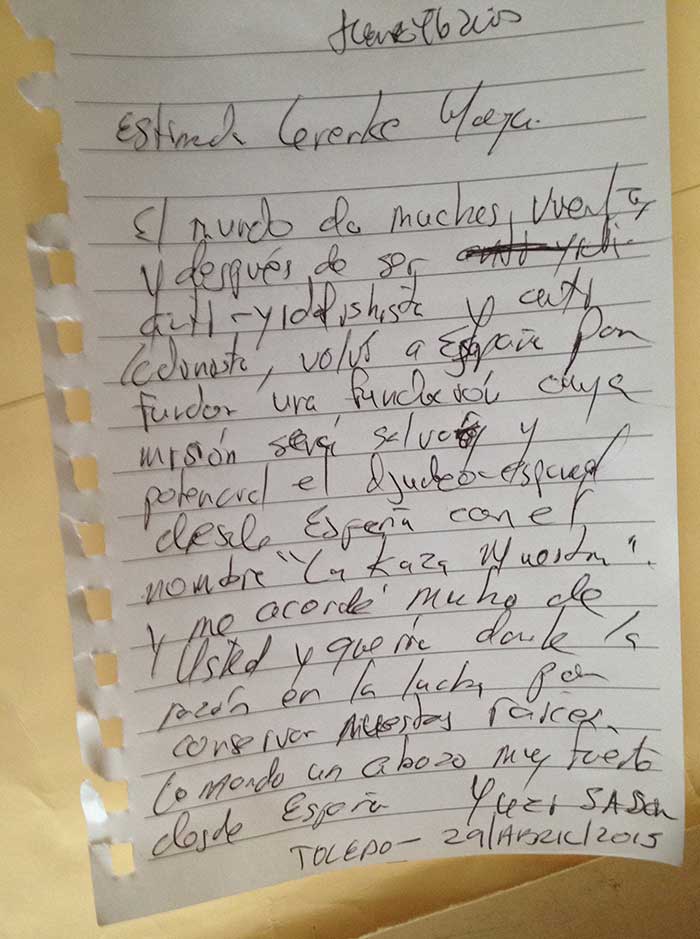 Estimada Gerente
El mundo da muchas vueltas
y después de ser
anti-yiddishista y anti
, volví a España para
fundar una fundación cuya
misión será salvar y
potencial el djudeo-espanyol
desde España con el
nombre "La Kaza Muestra".
Y me acordé mucho de
Usted y quería darle la
razón en la lucha por
conservar nuestras raíces.
Le mando un abrazo muy fuerte
desde España
TOLEDO - 29/ABRIL/2015